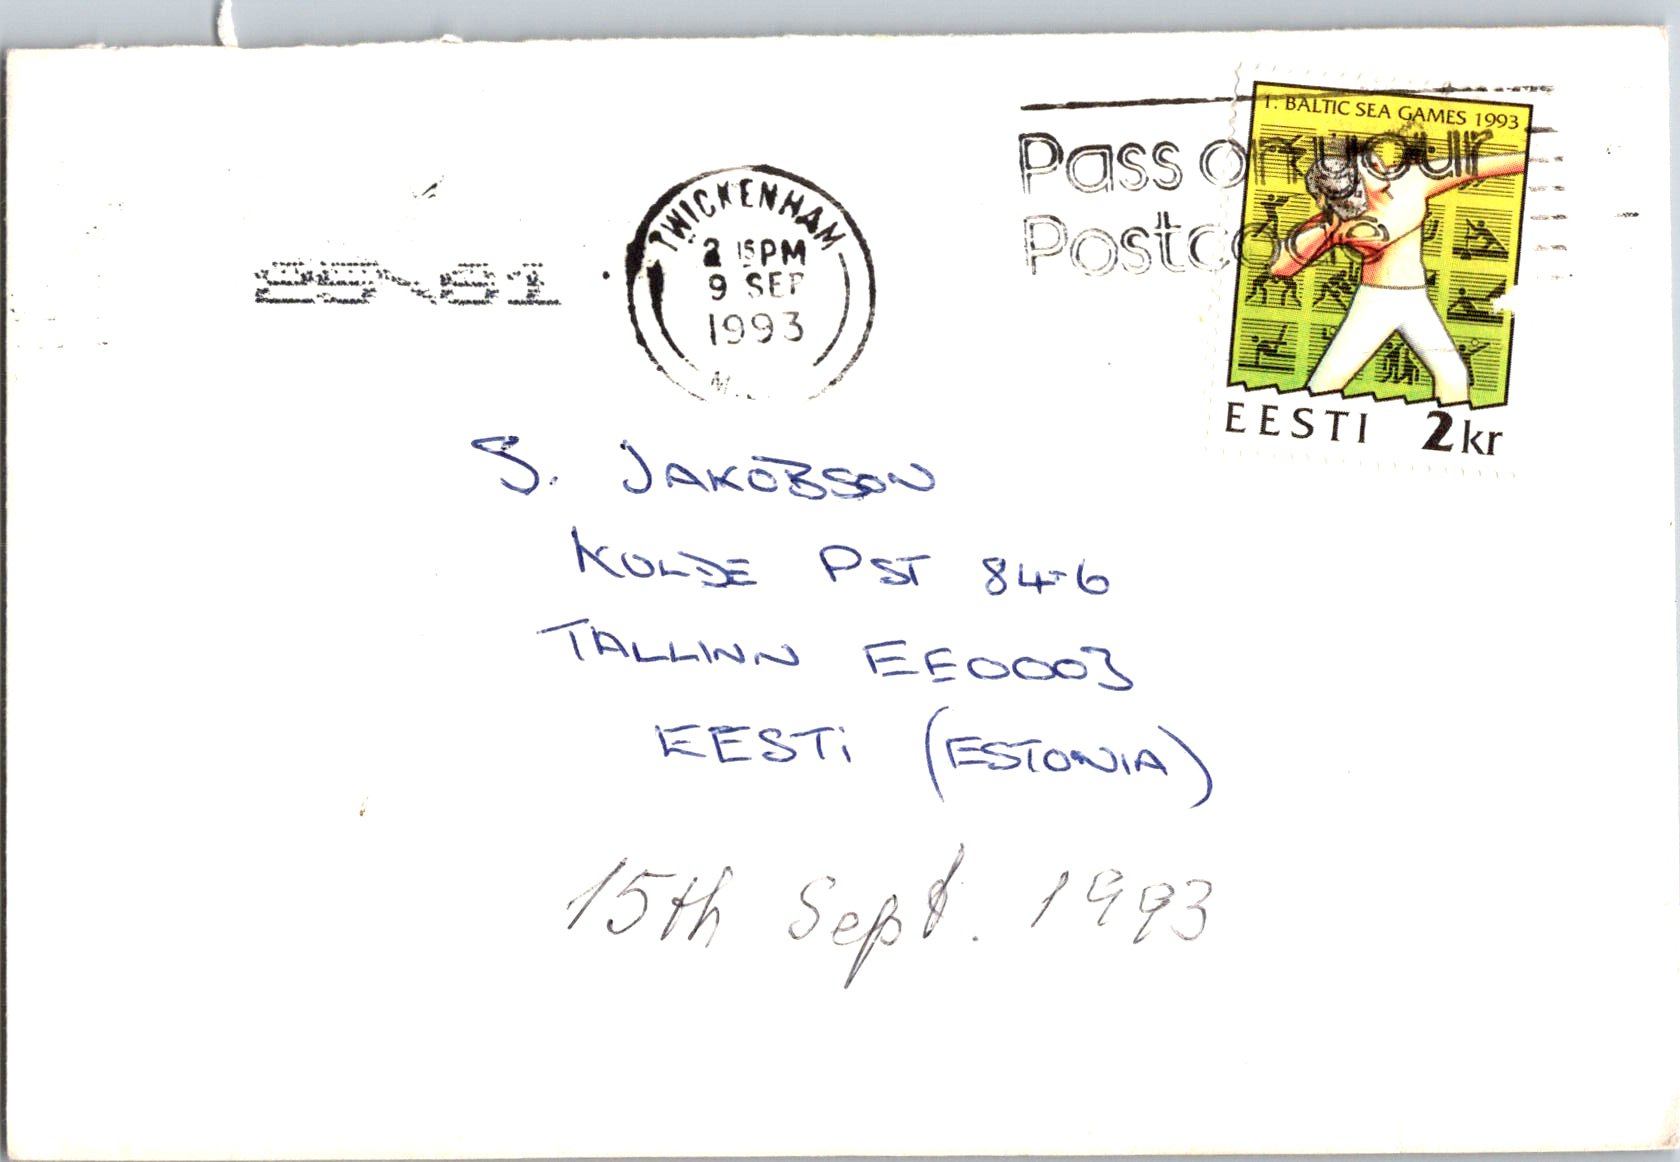 1. BALTIC SEA GAMES 1993
Pass on your
Postcode
TWICKENHAM
2 15PM
9 SEP
1993
EESTI 2kr
S. JAKOBSON
KOLDE PST 84-6
TALLINN EE0003
EESTi (ESTONIA)
15th Sept. 1993